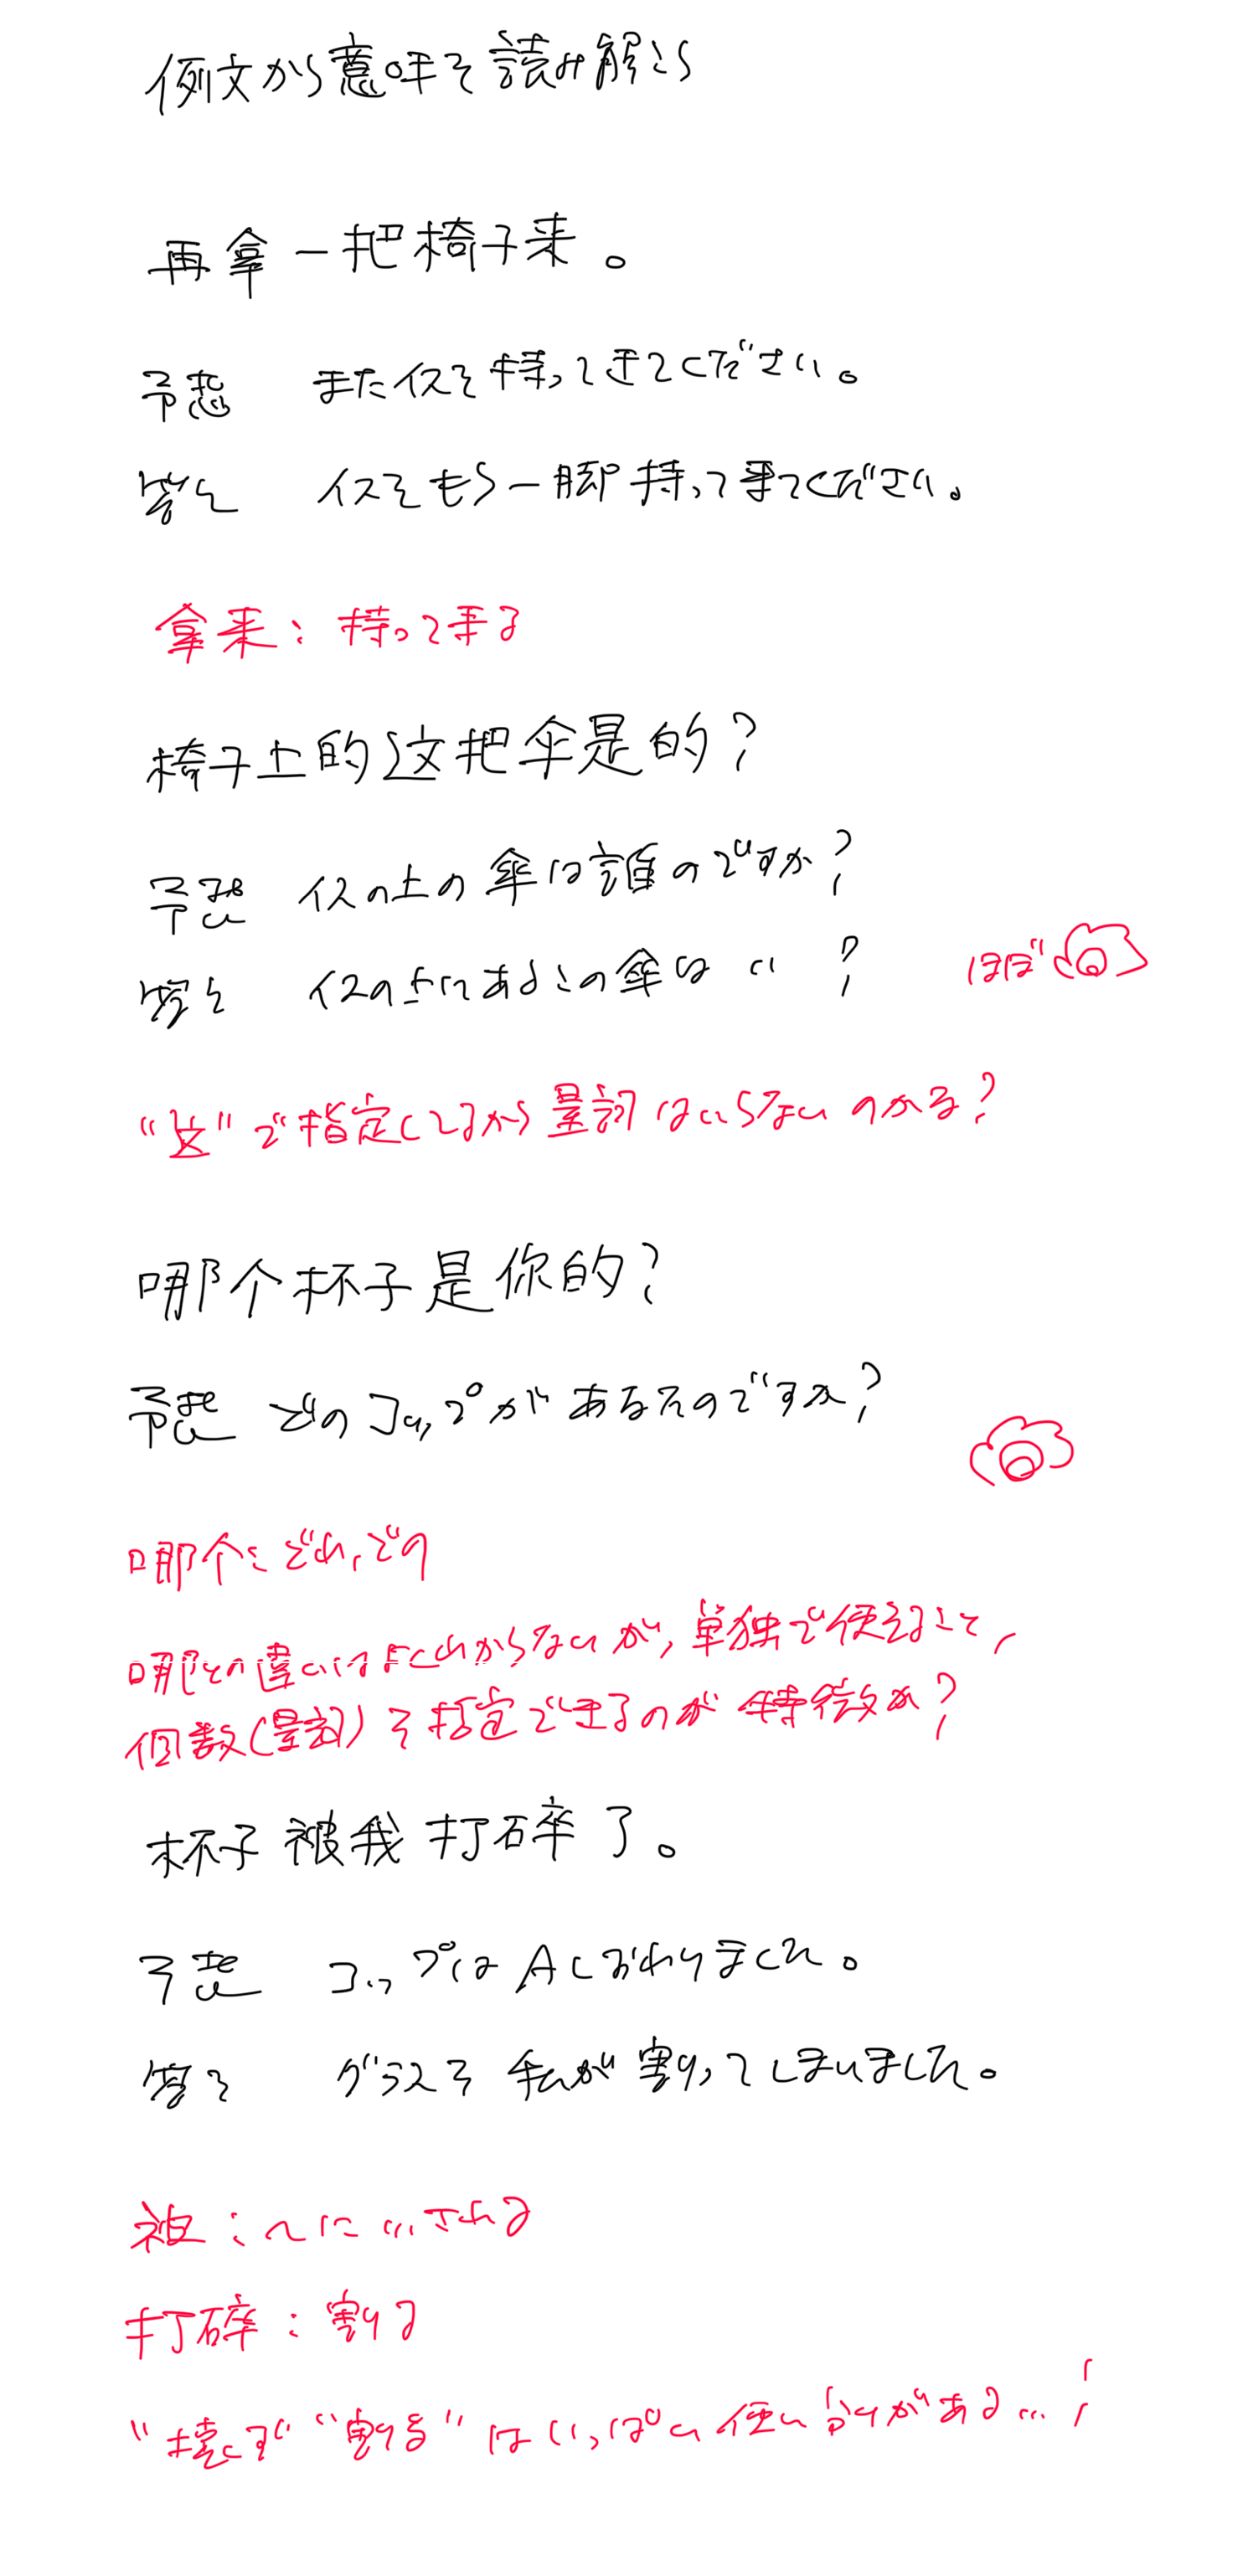 例文から意味を読み解こう
再拿一把椅子来。
予想 またイスを持ってきてください。
答え イスをもう一脚持って来てください。
拿来：持って来る
椅子上的这把伞是的？
予想 イスの上の傘は誰のですか？
答え イスの上にあるこの傘は 〃 ？
ほぼ
"这"で指定してるから量詞はいらないのかな？
哪个杯子是你的？
予想 どのコップがあなたのですか？
哪个：どれ、どの
哪との違いはよくわからないが、単独で使えること、
個数(量詞)を指定できるのが特徴か？
杯子被我打碎了。
予想 コップは A しおわりました。
答え グラスを私が割ってしまいました。
被：〜に…される
打碎：割る
"壊す" "割る" はいっぱい使い分けがある…！